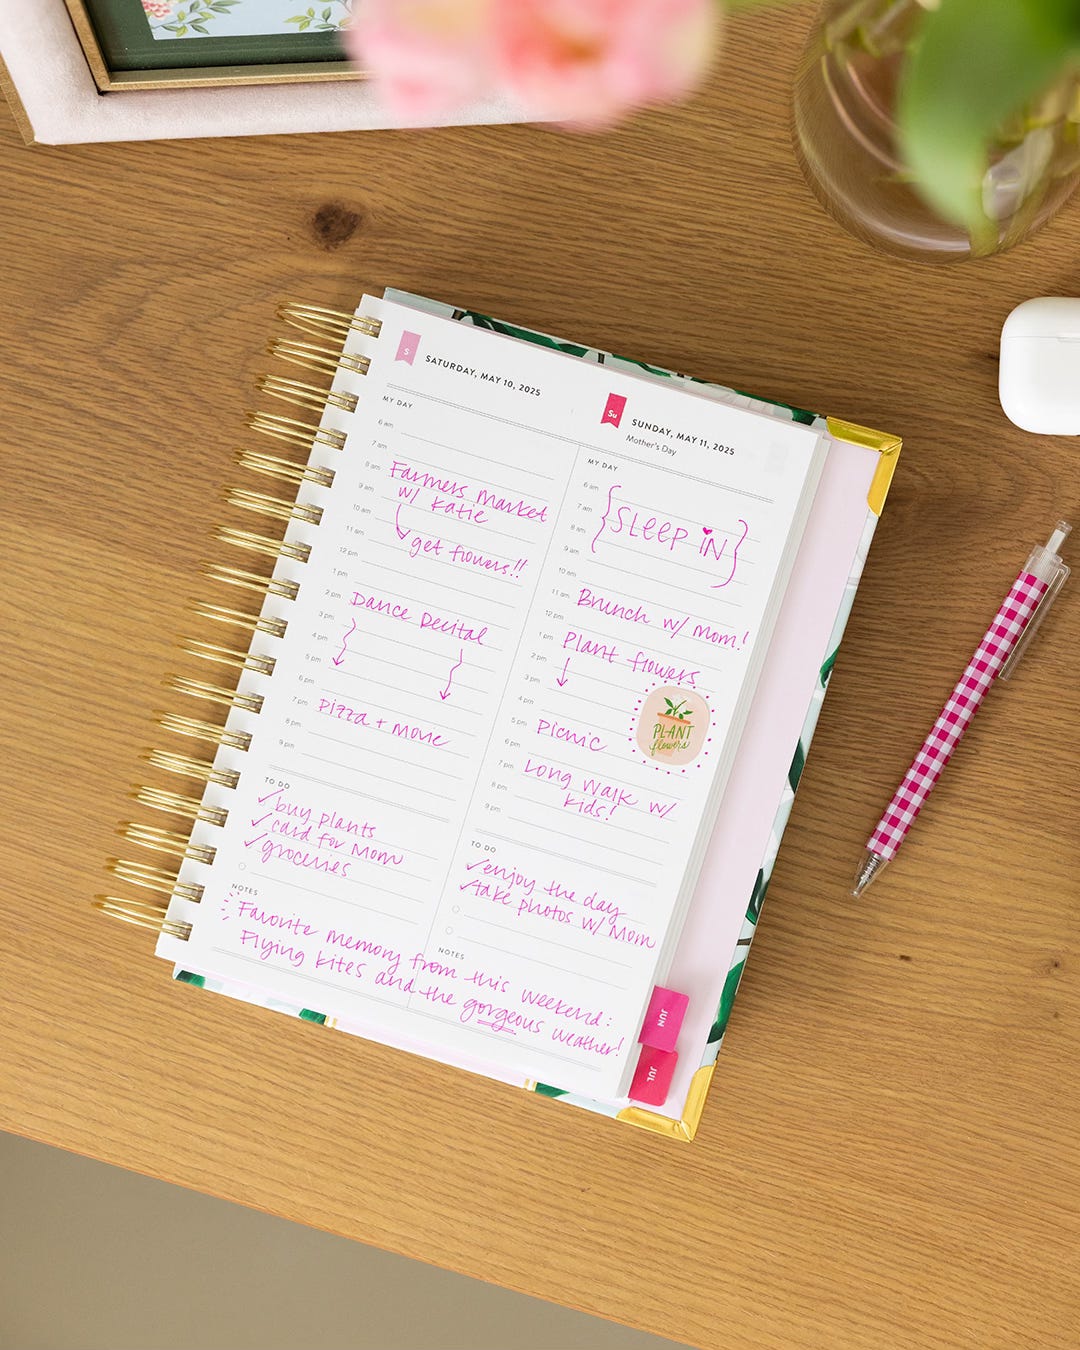 S
SATURDAY, MAY 10, 2025
MY DAY
6 am
7 am
8 am
Farmers Market
9 am
w/ Katie
10 am
get flowers!!
11 am
12 pm
1 pm
2 pm
Dance Recital
3 pm
4 pm
5 pm
6 pm
7 pm
Pizza + Movie
8 pm
9 pm
TO DO
buy plants
card for Mom
groceries
NOTES
Su
SUNDAY, MAY 11, 2025
Mother's Day
MY DAY
6 am
7 am
SLEEP IN
8 am
9 am
10 am
11 am
Brunch w/ Mom!
12 pm
1 pm
Plant flowers
2 pm
3 pm
4 pm
5 pm
Picnic
PLANT
flowers
6 pm
7 pm
Long Walk w/
8 pm
kids!
9 pm
TO DO
enjoy the day
take photos w/ Mom
NOTES
Favorite memory from this weekend:
Flying kites and the gorgeous weather!
JUN
JUL